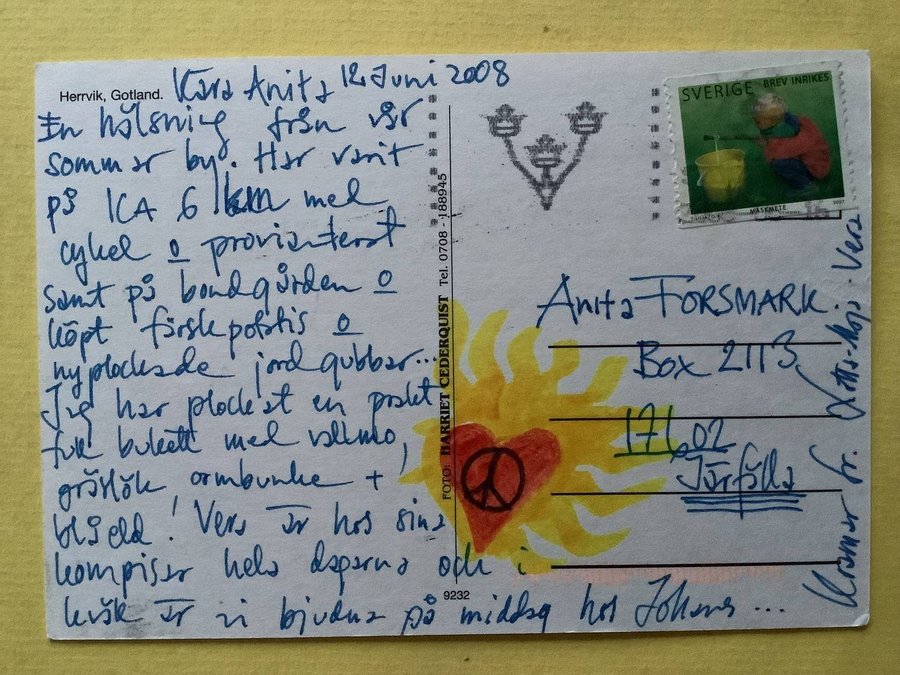 Herrvik, Gotland.
Kära Anita 12 Juni 2008
En hälsning från vår
sommar by. Har varit
på ICA 6 km med
cykel o provianterat
samt på bondgården o
köpt färskpotatis o
nyplockade jordgubbar...
Jag har plockat en prakt
full bukett med vallmo,
gräslök ormbunke +
blåeld! Vera är hos sina
kompisar hela dagarna och i
kväll är vi bjudna på middag hos Johans ...
FOTO: HARRIET CEDERQUIST Tel. 0708 - 188945
9232
SVERIGE BREV INRIKES
MASKMETE
2007
Anita FORSMARK
Box 2113
176 02
Järfälla
Kramar fr. Lotta-Maja. Vera